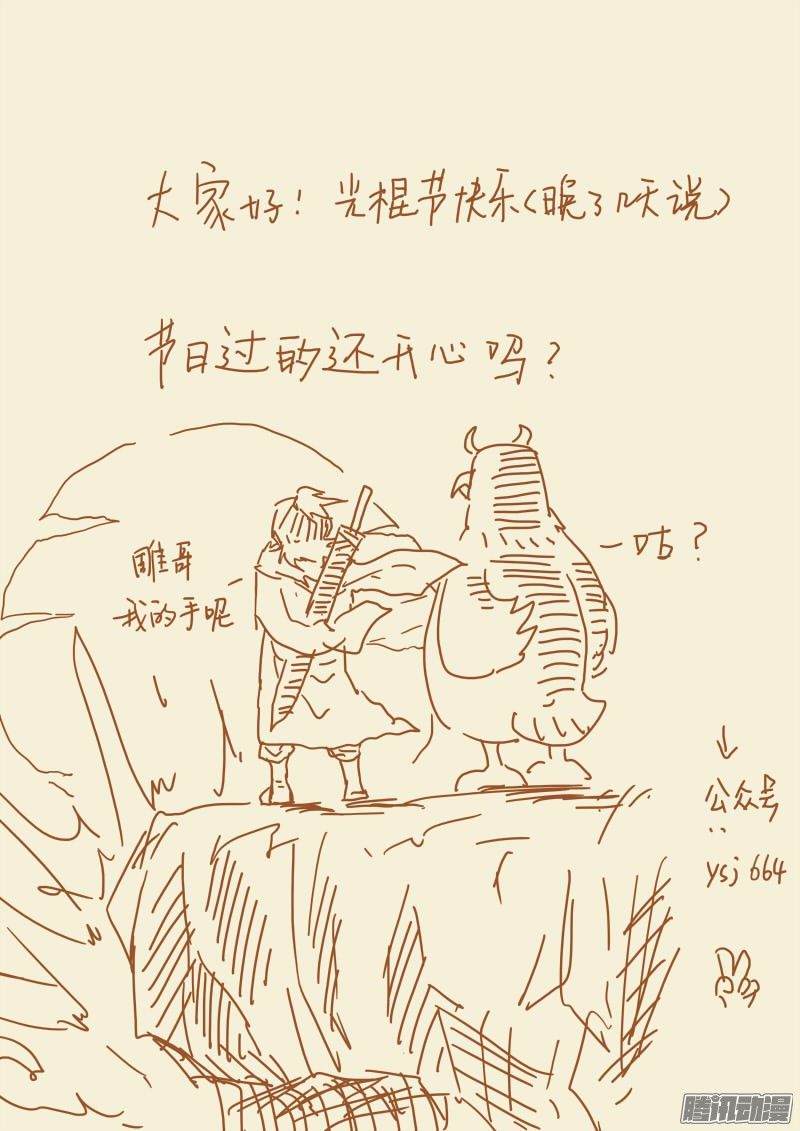 大家好！光棍节快乐（晚了N天说）
节日过的还开心吗？
雕哥
我的手呢
咕？
公众号
：
ysj664
腾讯动漫